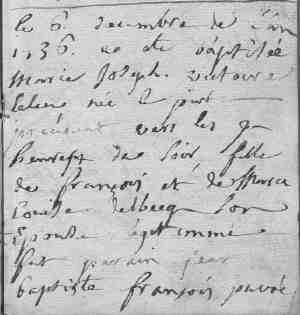 le 6 decembre de l'an
1736. a ete baptisée
Marie Joseph. victoire
née le jour
precedent vers les 7
heures du soir, fille
de françois et de Marie
Louise delbecq son
Epouse legitimme
fut parain jean
baptiste françois